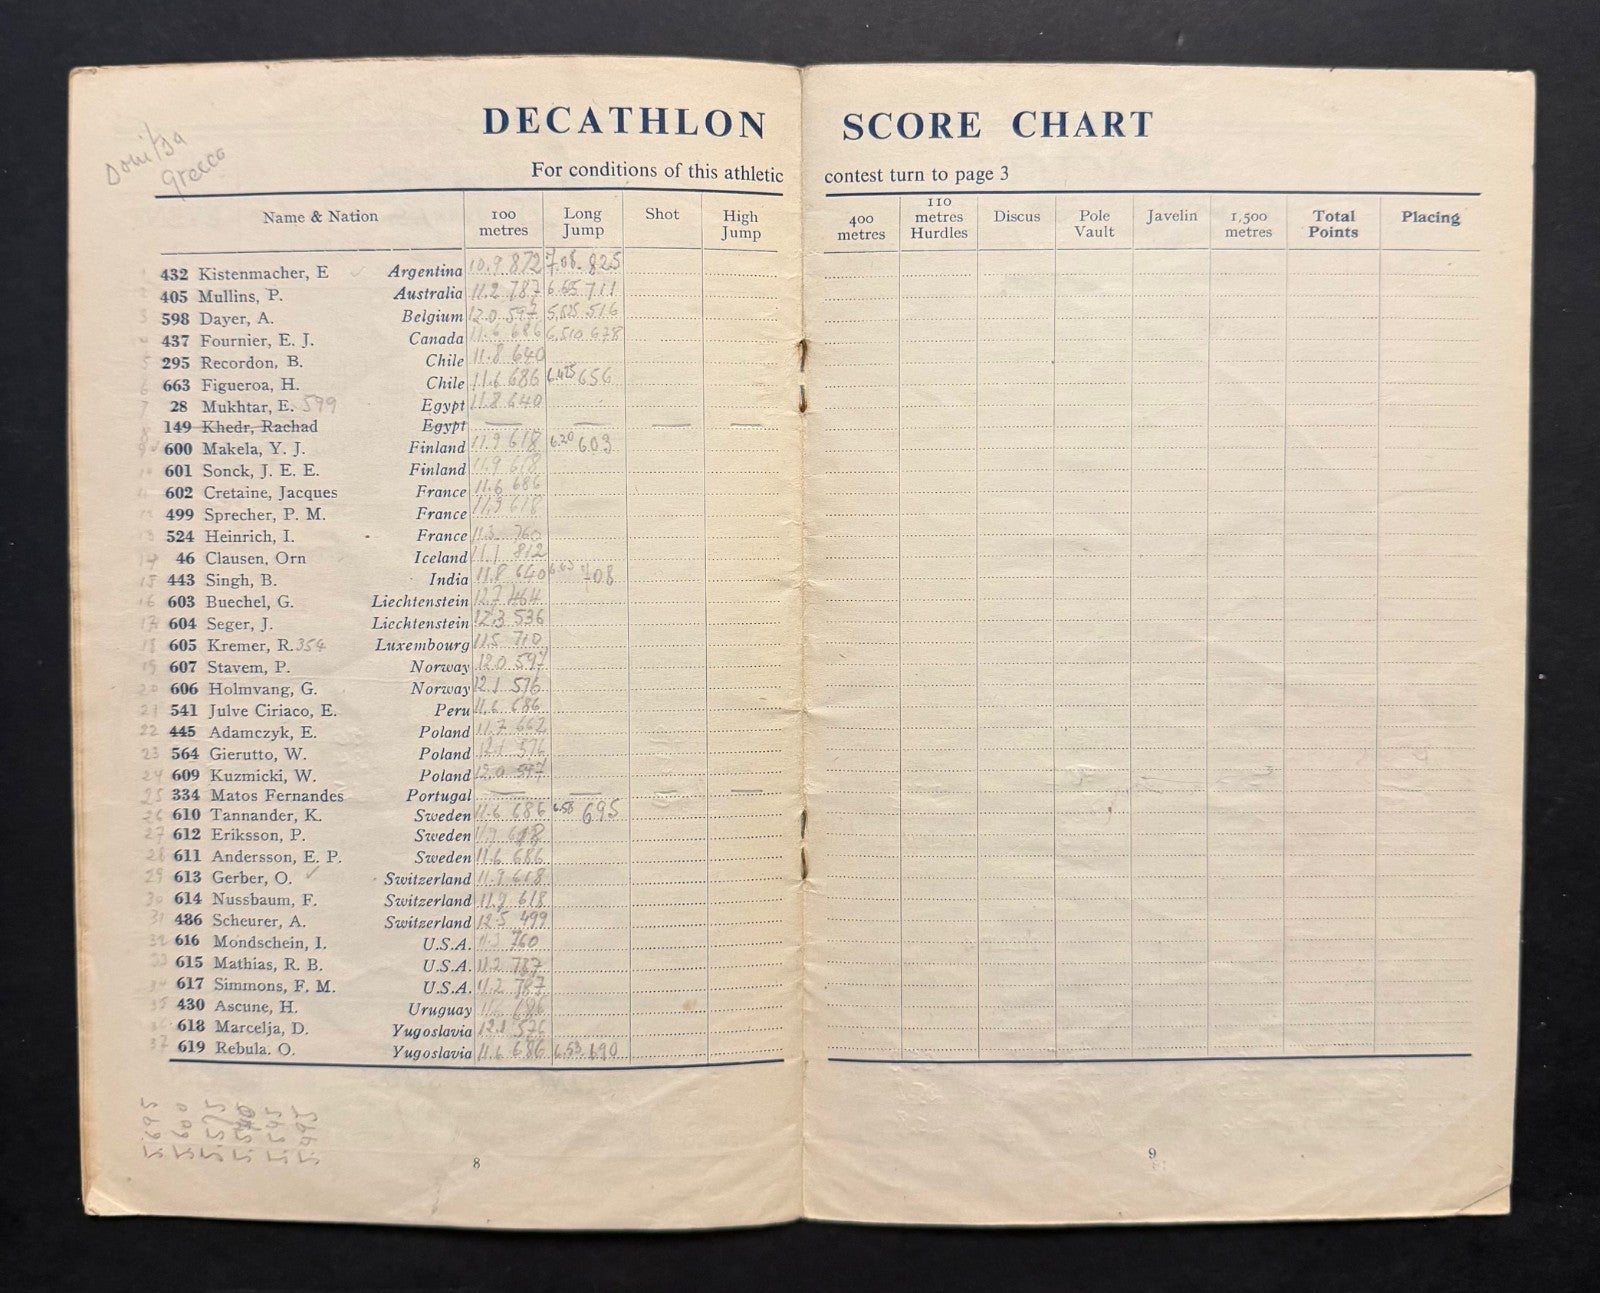 Donitsa
Greece
DECATHLON SCORE CHART
For conditions of this athletic contest turn to page 3
Name & Nation 100 metres Long Jump Shot High Jump 400 metres 110 metres Hurdles Discus Pole Vault Javelin 1,500 metres Total Points Placing
432 Kistenmacher, E Argentina 10.9 872 7.08 825
405 Mullins, P. Australia 11.2 787 6.65 711
598 Dayer, A. Belgium 12.0 597 5.825 516
437 Fournier, E. J. Canada 11.6 686 6.510 678
295 Recordon, B. Chile 11.8 640
6 663 Figueroa, H. Chile 11.6 686 6.425 656
7 28 Mukhtar, E. 599 Egypt 11.8 640
8 149 Khedr, Rachad Egypt
9 600 Makela, Y. J. Finland 11.9 618 6.20 603
601 Sonck, J. E. E. Finland 11.9 618
11 602 Cretaine, Jacques France 11.6 686
12 499 Sprecher, P. M. France 11.9 618
13 524 Heinrich, I. France 11.3 760
14 46 Clausen, Orn Iceland 11.1 812
15 443 Singh, B. India 11.8 640 708
16 603 Buechel, G. Liechtenstein 12.7 464
17 604 Seger, J. Liechtenstein 12.3 536
18 605 Kremer, R. 354 Luxembourg 11.5 710
19 607 Stavem, P. Norway 12.0 597
20 606 Holmvang, G. Norway 12.1 576
21 541 Julve Ciriaco, E. Peru 11.6 686
22 445 Adamczyk, E. Poland 11.7 662
23 564 Gierutto, W. Poland 12.1 576
24 609 Kuzmicki, W. Poland 12.0 597
25 334 Matos Fernandes Portugal
26 610 Tannander, K. Sweden 11.6 686 6.58 695
27 612 Eriksson, P. Sweden 11.9 618
28 611 Andersson, E. P. Sweden 11.6 686
29 613 Gerber, O. ✓ Switzerland 11.9 618
30 614 Nussbaum, F. Switzerland 11.9 618
31 486 Scheurer, A. Switzerland 12.5 499
32 616 Mondschein, I. U.S.A. 11.3 760
33 615 Mathias, R. B. U.S.A. 11.2 787
34 617 Simmons, F. M. U.S.A. 11.2 787
35 430 Ascune, H. Uruguay 11.6 686
36 618 Marcelja, D. Yugoslavia 12.1 576
37 619 Rebula. O. Yugoslavia 11.6 686 6.53 690
5.695
5.600
5.575
5.645
8
9